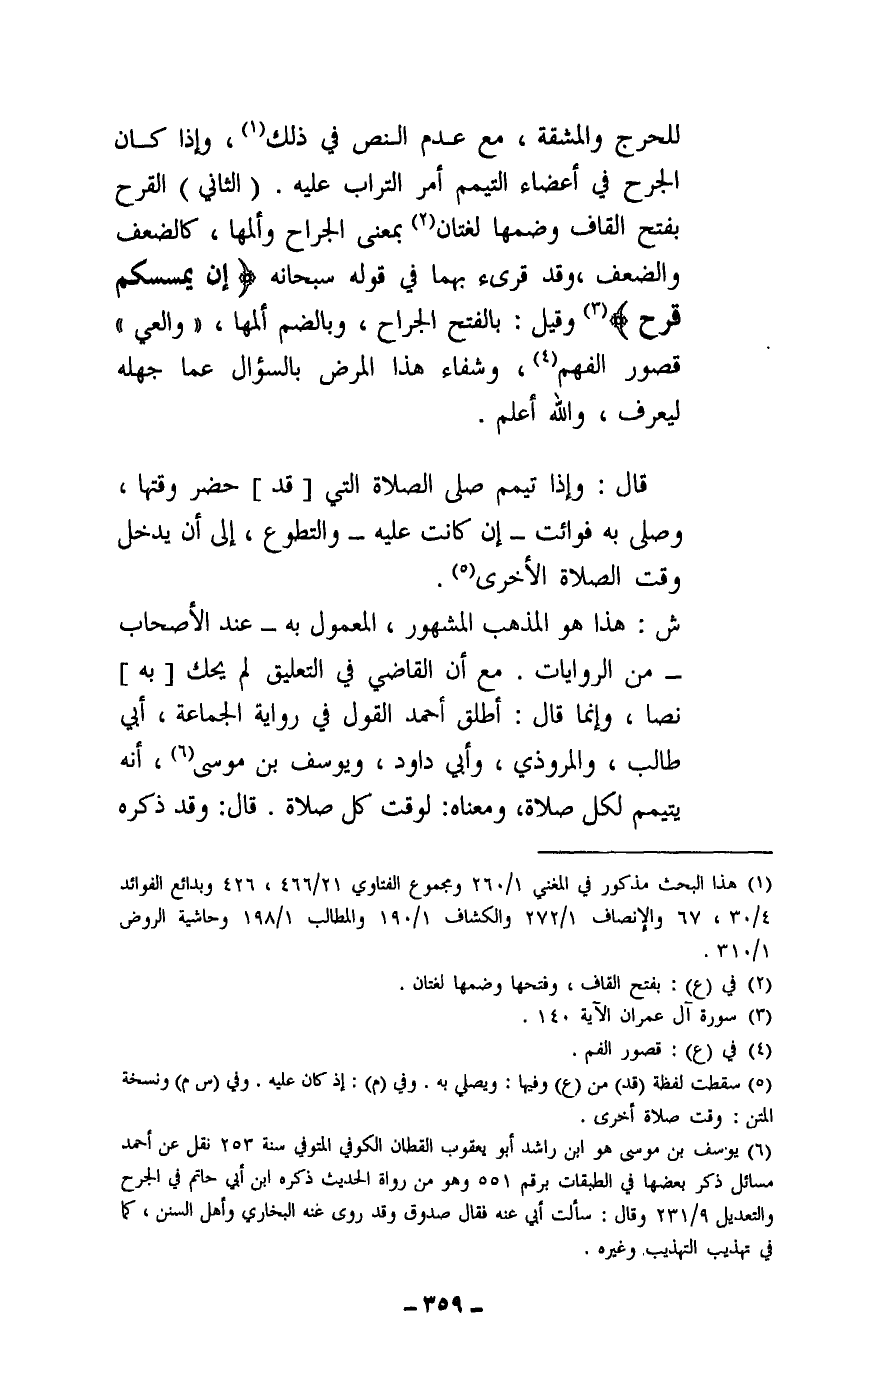 للحرج والمشقة ، مع عـدم الـنص في ذلك(١) ، وإذا كــان
الجرح في أعضاء التيمم أمر التراب عليه . ( الثاني ) القرح
بفتح القاف وضمها لغتان(٢) بمعنى الجراح وألمها ، كالضعف
والضعف ،وقد قرىء بهما في قوله سبحانه ﴿ إن يمسسكم
قرح ﴾(٣) وقيل : بالفتح الجراح ، وبالضم ألمها ، « والعي »
قصور الفهم(٤) ، وشفاء هذا المرض بالسؤال عما جهله
ليعرف ، والله أعلم .
قال : وإذا تيمم صلى الصلاة التي [ قد ] حضر وقتها ،
وصلى به فوائت – إن كانت عليه – والتطوع ، إلى أن يدخل
وقت الصلاة الأخرى(٥) .
ش : هذا هو المذهب المشهور ، المعمول به – عند الأصحاب
– من الروايات . مع أن القاضي في التعليق لم يحك [ به ]
نصا ، وإنما قال : أطلق أحمد القول في رواية الجماعة ، أبي
طالب ، والمروذي ، وأبي داود ، ويوسف بن موسى(٦) ، أنه
يتيمم لكل صلاة، ومعناه: لوقت كل صلاة . قال: وقد ذكره
(١) هذا البحث مذكور في المغني ٢٦٠/١ ومجموع الفتاوي ٤٦٦/٢١ ، ٤٢٦ وبدائع الفوائد
٣٠/٤ ، ٦٧ والإنصاف ٢٧٢/١ والكشاف ١٩٠/١ والمطالب ١٩٨/١ وحاشية الروض
٣١٠/١ .
(٢) في (ع) : بفتح القاف ، وفتحها وضمها لغتان .
(٣) سورة آل عمران الآية ١٤٠ .
(٤) في (ع) : قصور الفم .
(٥) سقطت لفظة (قد) من (ع) وفيها : ويصلي به . وفي (م) : إذ كان عليه . وفي (س م) ونسخة
المتن : وقت صلاة أخرى .
(٦) يوسف بن موسى هو ابن راشد أبو يعقوب القطان الكوفي المتوفي سنة ٢٥٣ نقل عن أحمد
مسائل ذكر بعضها في الطبقات برقم ٥٥١ وهو من رواة الحديث ذكره ابن أبي حاتم في الجرح
والتعديل ٢٣١/٩ وقال : سألت أبي عنه فقال صدوق وقد روى عنه البخاري وأهل السنن ، كما
في تهذيب التهذيب وغيره .
– ٣٥٩ –